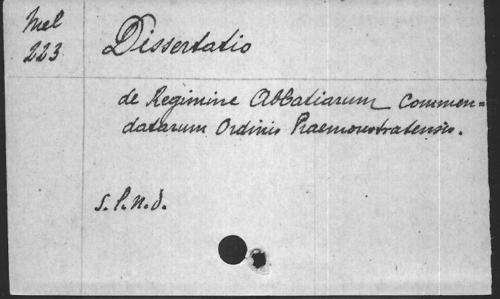 Mel
223
Dissertatio
de Regimine Abbatiarum Commen-
datarum Ordinis Praemonstratensis.
s.l.n.d.